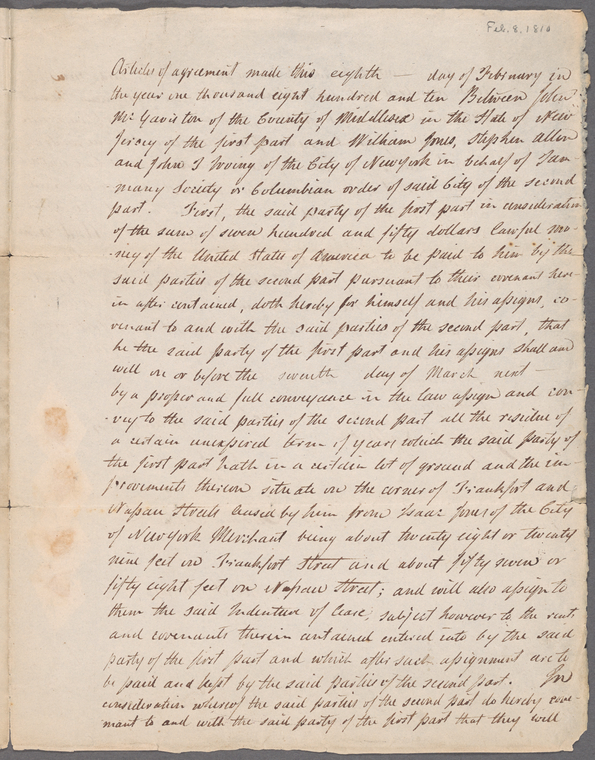 Feb. 8. 1810
Articles of agreement made this eighth — day of February in
the year one thousand eight hundred and ten Between John
McGaviston of the County of Middlesex in the State of New
Jersey of the first part and William Jones, Stephen Allen
and John T Irving of the City of New york in behalf of Tam-
-many Society or Columbian order of said City of the second
part. First, the said party of the first part in consideration
of the sum of seven hundred and fifty dollars lawful mo-
-ney of the United States of America to be paid to him by the
said parties of the second part pursuant to their covenant here
in after contained, doth hereby for himself and his assigns, co-
venant to and with the said parties of the second part, that
he the said party of the first part and his assigns shall and
will on or before the seventh day of March next —
by a proper and full conveyance in the law assign and con-
vey to the said parties of the second part all the residue of
a certain unexpired term of years which the said party of
the first part hath in a certain lot of ground and the im-
provements thereon situate on the corner of Frankfort and
Nassau Streets leased by him from Isaac Jones of the City
of New york Merchant being about twenty eight or twenty
nine feet on Frankfort Street and about fifty seven or
fifty eight feet on Nassau Street; and will also assign to
them the said Indenture of lease, subject however to the rents
and covenants therein contained entered into by the said
party of the first part and which after such assignment are to
be paid and kept by the said parties of the second part. In
consideration whereof the said parties of the second part do hereby cove-
nant to and with the said party of the first part that they will